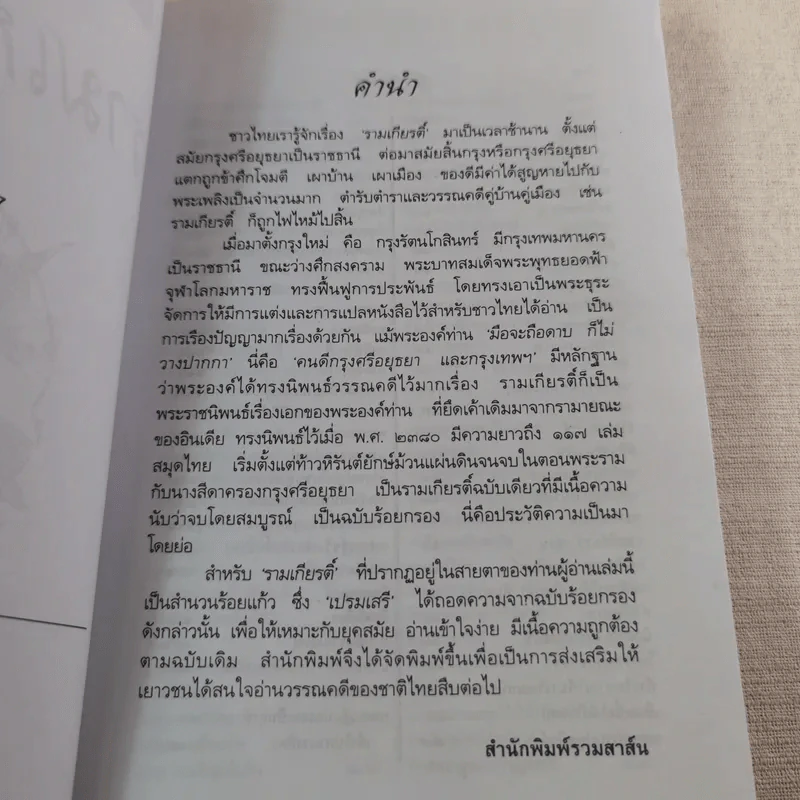 คำนำ
ชาวไทยเรารู้จักเรื่อง 'รามเกียรติ์' มาเป็นเวลาช้านาน ตั้งแต่
สมัยกรุงศรีอยุธยาเป็นราชธานี ต่อมาสมัยสิ้นกรุงหรือกรุงศรีอยุธยา
แตกถูกข้าศึกโจมตี เผาบ้าน เผาเมือง ของดีมีค่าได้สูญหายไปกับ
พระเพลิงเป็นจำนวนมาก ตำรับตำราและวรรณคดีคู่บ้านคู่เมือง เช่น
รามเกียรติ์ ก็ถูกไฟไหม้ไปสิ้น
เมื่อมาตั้งกรุงใหม่ คือ กรุงรัตนโกสินทร์ มีกรุงเทพมหานคร
เป็นราชธานี ขณะว่างศึกสงคราม พระบาทสมเด็จพระพุทธยอดฟ้า
จุฬาโลกมหาราช ทรงฟื้นฟูการประพันธ์ โดยทรงเอาเป็นพระธุระ
จัดการให้มีการแต่งและการแปลหนังสือไว้สำหรับชาวไทยได้อ่าน เป็น
การเรืองปัญญามากเรื่องด้วยกัน แม้พระองค์ท่าน 'มือจะถือดาบ ก็ไม่
วางปากกา' นี่คือ 'คนดีกรุงศรีอยุธยา และกรุงเทพฯ' มีหลักฐาน
ว่าพระองค์ได้ทรงนิพนธ์วรรณคดีไว้มากเรื่อง รามเกียรติ์ก็เป็น
พระราชนิพนธ์เรื่องเอกของพระองค์ท่าน ที่ยึดเค้าเดิมมาจากรามายณะ
ของอินเดีย ทรงนิพนธ์ไว้เมื่อ พ.ศ. ๒๓๘๐ มีความยาวถึง ๑๑๗ เล่ม
สมุดไทย เริ่มตั้งแต่ท้าวหิรันต์ยักษ์ม้วนแผ่นดินจนจบในตอนพระราม
กับนางสีดาครองกรุงศรีอยุธยา เป็นรามเกียรติ์ฉบับเดียวที่มีเนื้อความ
นับว่าจบโดยสมบูรณ์ เป็นฉบับร้อยกรอง นี่คือประวัติความเป็นมา
โดยย่อ
สำหรับ 'รามเกียรติ์' ที่ปรากฏอยู่ในสายตาของท่านผู้อ่านเล่มนี้
เป็นสำนวนร้อยแก้ว ซึ่ง 'เปรมเสรี' ได้ถอดความจากฉบับร้อยกรอง
ดังกล่าวนั้น เพื่อให้เหมาะกับยุคสมัย อ่านเข้าใจง่าย มีเนื้อความถูกต้อง
ตามฉบับเดิม สำนักพิมพ์จึงได้จัดพิมพ์ขึ้นเพื่อเป็นการส่งเสริมให้
เยาวชนได้สนใจอ่านวรรณคดีของชาติไทยสืบต่อไป
สำนักพิมพ์รวมสาส์น